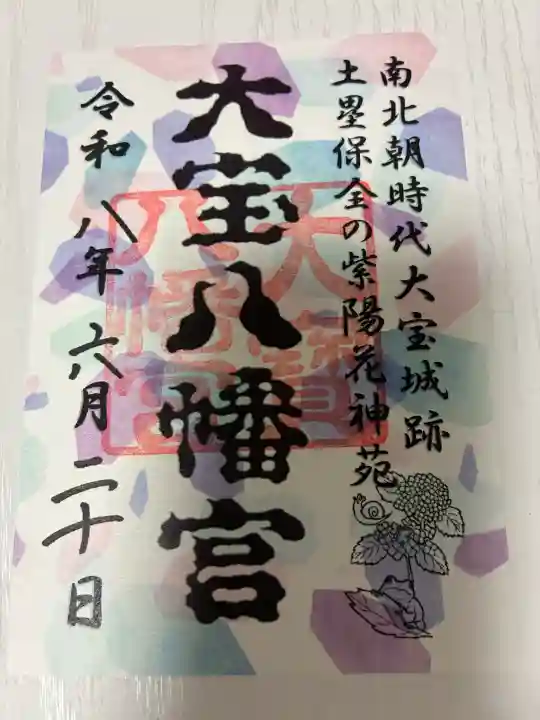 南北朝時代大宝城跡
土塁保全の紫陽花神苑
大宝八幡宮
大寶
八幡宮
令和八年六月二十日